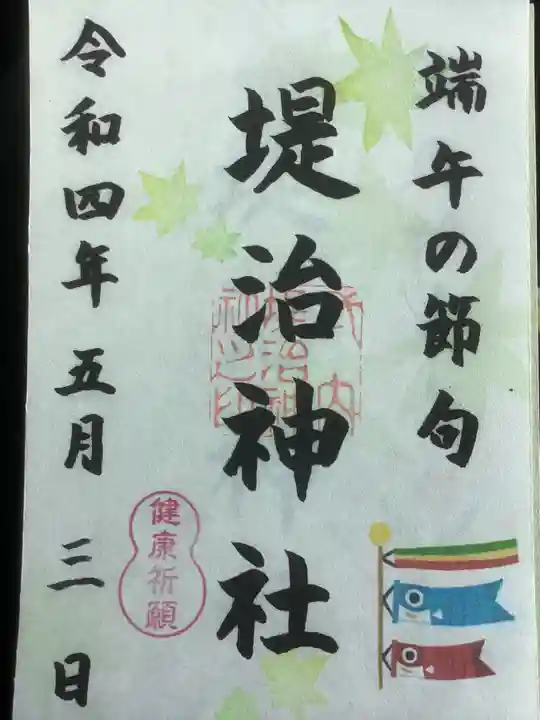 端午の節句
堤治神社
令和四年五月三日
健康祈願